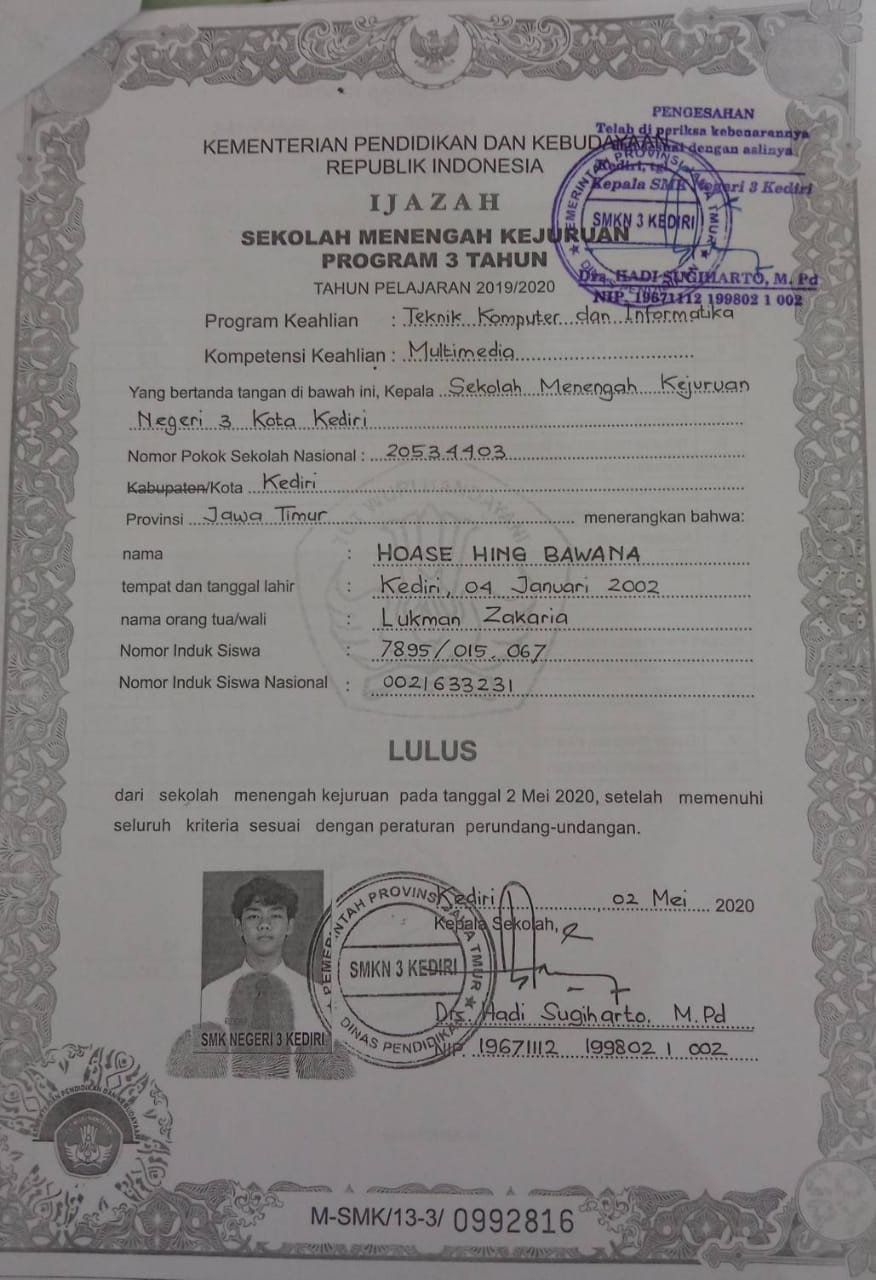 PENGESAHAN
Telah di periksa kebenarannya
dengan aslinya
Kediri, tgl
Kepala SMK Negeri 3 Kediri
PEMERINTAH PROVINSI JAWA TIMUR
SMKN 3 KEDIRI
Drs. HADI SUGIHARTO, M. Pd
NIP. 19671112 199802 1 002
KEMENTERIAN PENDIDIKAN DAN KEBUDAYAAN
REPUBLIK INDONESIA
IJAZAH
SEKOLAH MENENGAH KEJURUAN
PROGRAM 3 TAHUN
TAHUN PELAJARAN 2019/2020
Program Keahlian : Teknik Komputer dan Informatika
Kompetensi Keahlian : Multimedia
Yang bertanda tangan di bawah ini, Kepala Sekolah Menengah Kejuruan
Negeri 3 Kota Kediri
Nomor Pokok Sekolah Nasional : 20534403
Kabupaten/Kota Kediri
Provinsi Jawa Timur menerangkan bahwa:
nama : HOASE HING BAWANA
tempat dan tanggal lahir : Kediri, 04 Januari 2002
nama orang tua/wali : Lukman Zakaria
Nomor Induk Siswa : 7895/015.067
Nomor Induk Siswa Nasional : 0021633231
LULUS
dari sekolah menengah kejuruan pada tanggal 2 Mei 2020, setelah memenuhi
seluruh kriteria sesuai dengan peraturan perundang-undangan.
Kediri, 02 Mei 2020
Kepala Sekolah,
PEMERINTAH PROVINSI JAWA TIMUR
SMKN 3 KEDIRI
DINAS PENDIDIKAN
SMK NEGERI 3 KEDIRI
Drs. Hadi Sugiharto, M.Pd
NIP. 19671112 199802 1 002
KEMENTERIAN PENDIDIKAN DAN KEBUDAYAAN
M-SMK/13-3/ 0992816